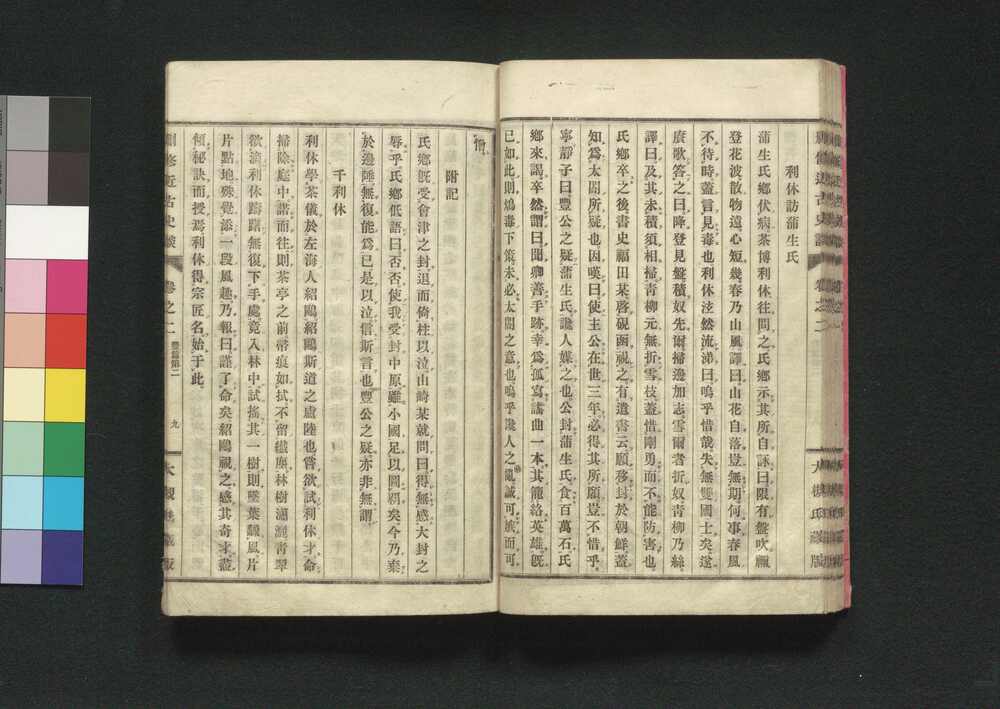 利休訪蒲生氏
蒲生氏鄉伏病茶博利休往問之氏鄉示其所自詠曰限有盤吹飄
登花波散物遠心短幾春乃山風譯曰山花自落豈無期何事春風
不待時蓋言見毒也利休泫然流涕曰嗚乎惜哉失無雙國士矣遂
賡歌答之曰降登見盤積奴先爾掃邊加志雪爾者折奴青柳乃絲
譯曰及其未積須相掃青柳元無折雪枝蓋惜剛勇而不能防害也
氏鄉卒之後書史福田某啓硯函視之有遺書云願移封於朝鮮蓋
知爲太閤所疑也因嘆曰使主公在世三年必得其所願豈不惜乎
寧靜子曰豐公之疑蒲生氏讒人媒之也公封蒲生氏食百萬石氏
鄉來謁卒然謂曰聞卿善手跡幸爲孤寫謠曲一本其籠絡英雄既
已如此則鴆毒下策未必太閤之意也嗚乎讒人之亂誠可嫉而可
憎
附記
氏鄉既受會津之封退而倚柱以泣山崎某就問曰得無感大封之
辱乎氏鄉低語曰否否使我受封中原雖小國足以圖覇矣今乃棄
於邊陲無復能爲已是以泣信斯言也豐公之疑亦非無謂
千利休
利休學茶儀於左海人紹鷗紹鷗斯道之盧陸也嘗欲試利休才命
掃除庭中諾而往則茶亭之前帚痕如拭不留纖塵林樹瀟灑靑翠
欲滴利休躊躇無復下手處竟入林中試搖其一樹則墜葉飄風片
片點地殊覺添一段風趣乃報曰謹了命矣紹鷗視之感其奇才盡
傾秘訣而授焉利休得宗匠名始于此
修近古史談 卷之二 豐篇第二 九 大槻氏藏版